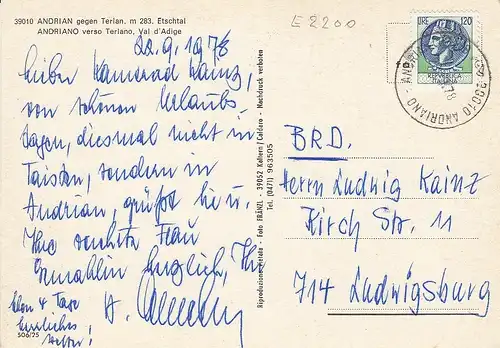 39010 ANDRIAN gegen Terlan. m 283. Etschtal
ANDRIANO verso Terlano, Val d'Adige
22.9.1978
Lieber Kamerad Kainz,
von schönen Urlaubs-
tagen, diesmal nicht in
Taisten, sondern in
Andrian, grüßt Sie u.
Ihre verehrte Frau
Gemahlin herzlich, Ihr
A.
Schon 4 Tage
herrliches
Wetter!
506/75
Riproduzione vietata - Foto FRÄNZL - 39052 Kaltern/Caldaro - Nachdruck verboten
Tel. (0471) 963505
E 2200
LIRE 120
REPVBBLICA
ITALIANA
39010 ANDRIANO
BRD.
Herrn Ludwig Kainz
Kirch Str. 11
714 Ludwigsburg